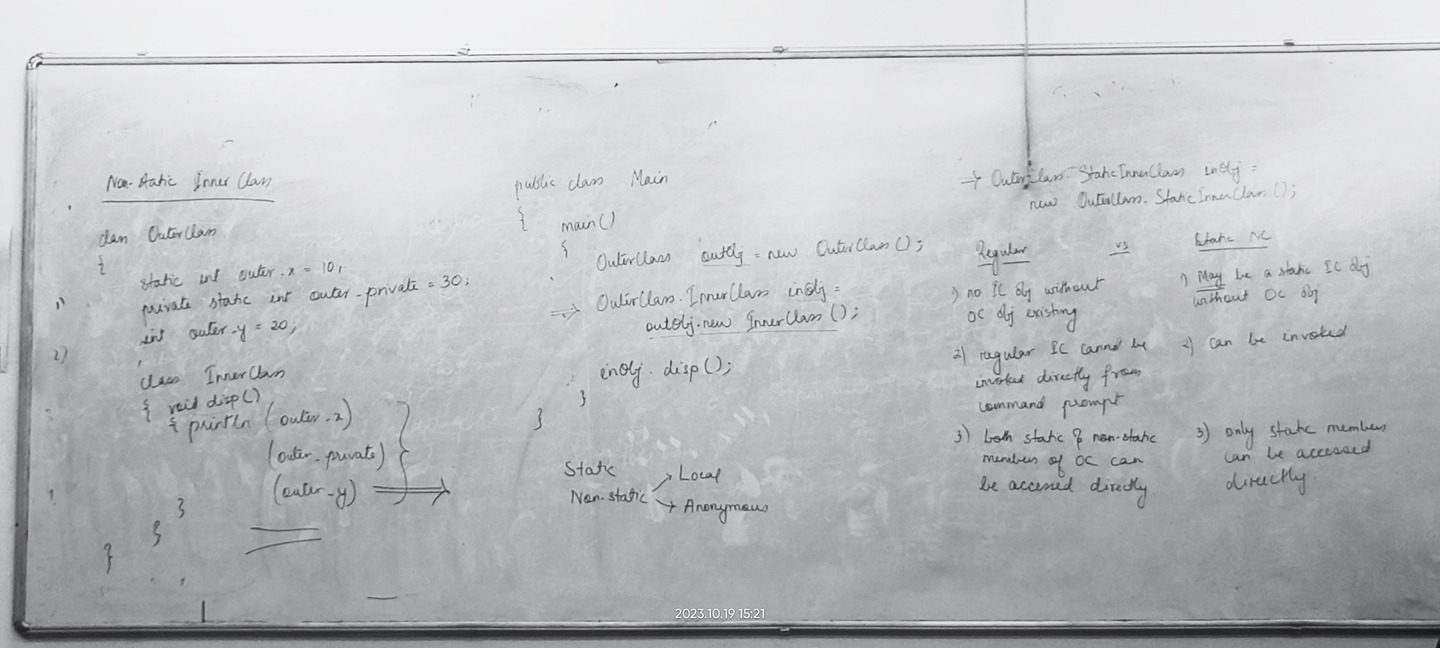 Non-static Inner Class
class OuterClass
{
static int outer_x = 10;
1) private static int outer_private = 30;
int outer_y = 20;
2)
class InnerClass
{ void disp()
{ println (outer_x)
(outer_private)
(outer_y)
}
}
}
public class Main
{
main()
{
OuterClass outObj = new OuterClass();
=> OuterClass.InnerClass inObj =
outObj.new InnerClass();
inObj.disp();
}
}
Static
Non-static → Local
→ Anonymous
→ OuterClass.StaticInnerClass inObj =
new OuterClass.StaticInnerClass();
Regular vs Static NC
1) no IC obj without
OC obj existing
2) regular IC cannot be
invoked directly from
command prompt
3) both static & non-static
members of OC can
be accessed directly
1) May be a static IC obj
without OC obj
2) can be invoked
3) only static members
can be accessed
directly.
2023.10.19 15:21